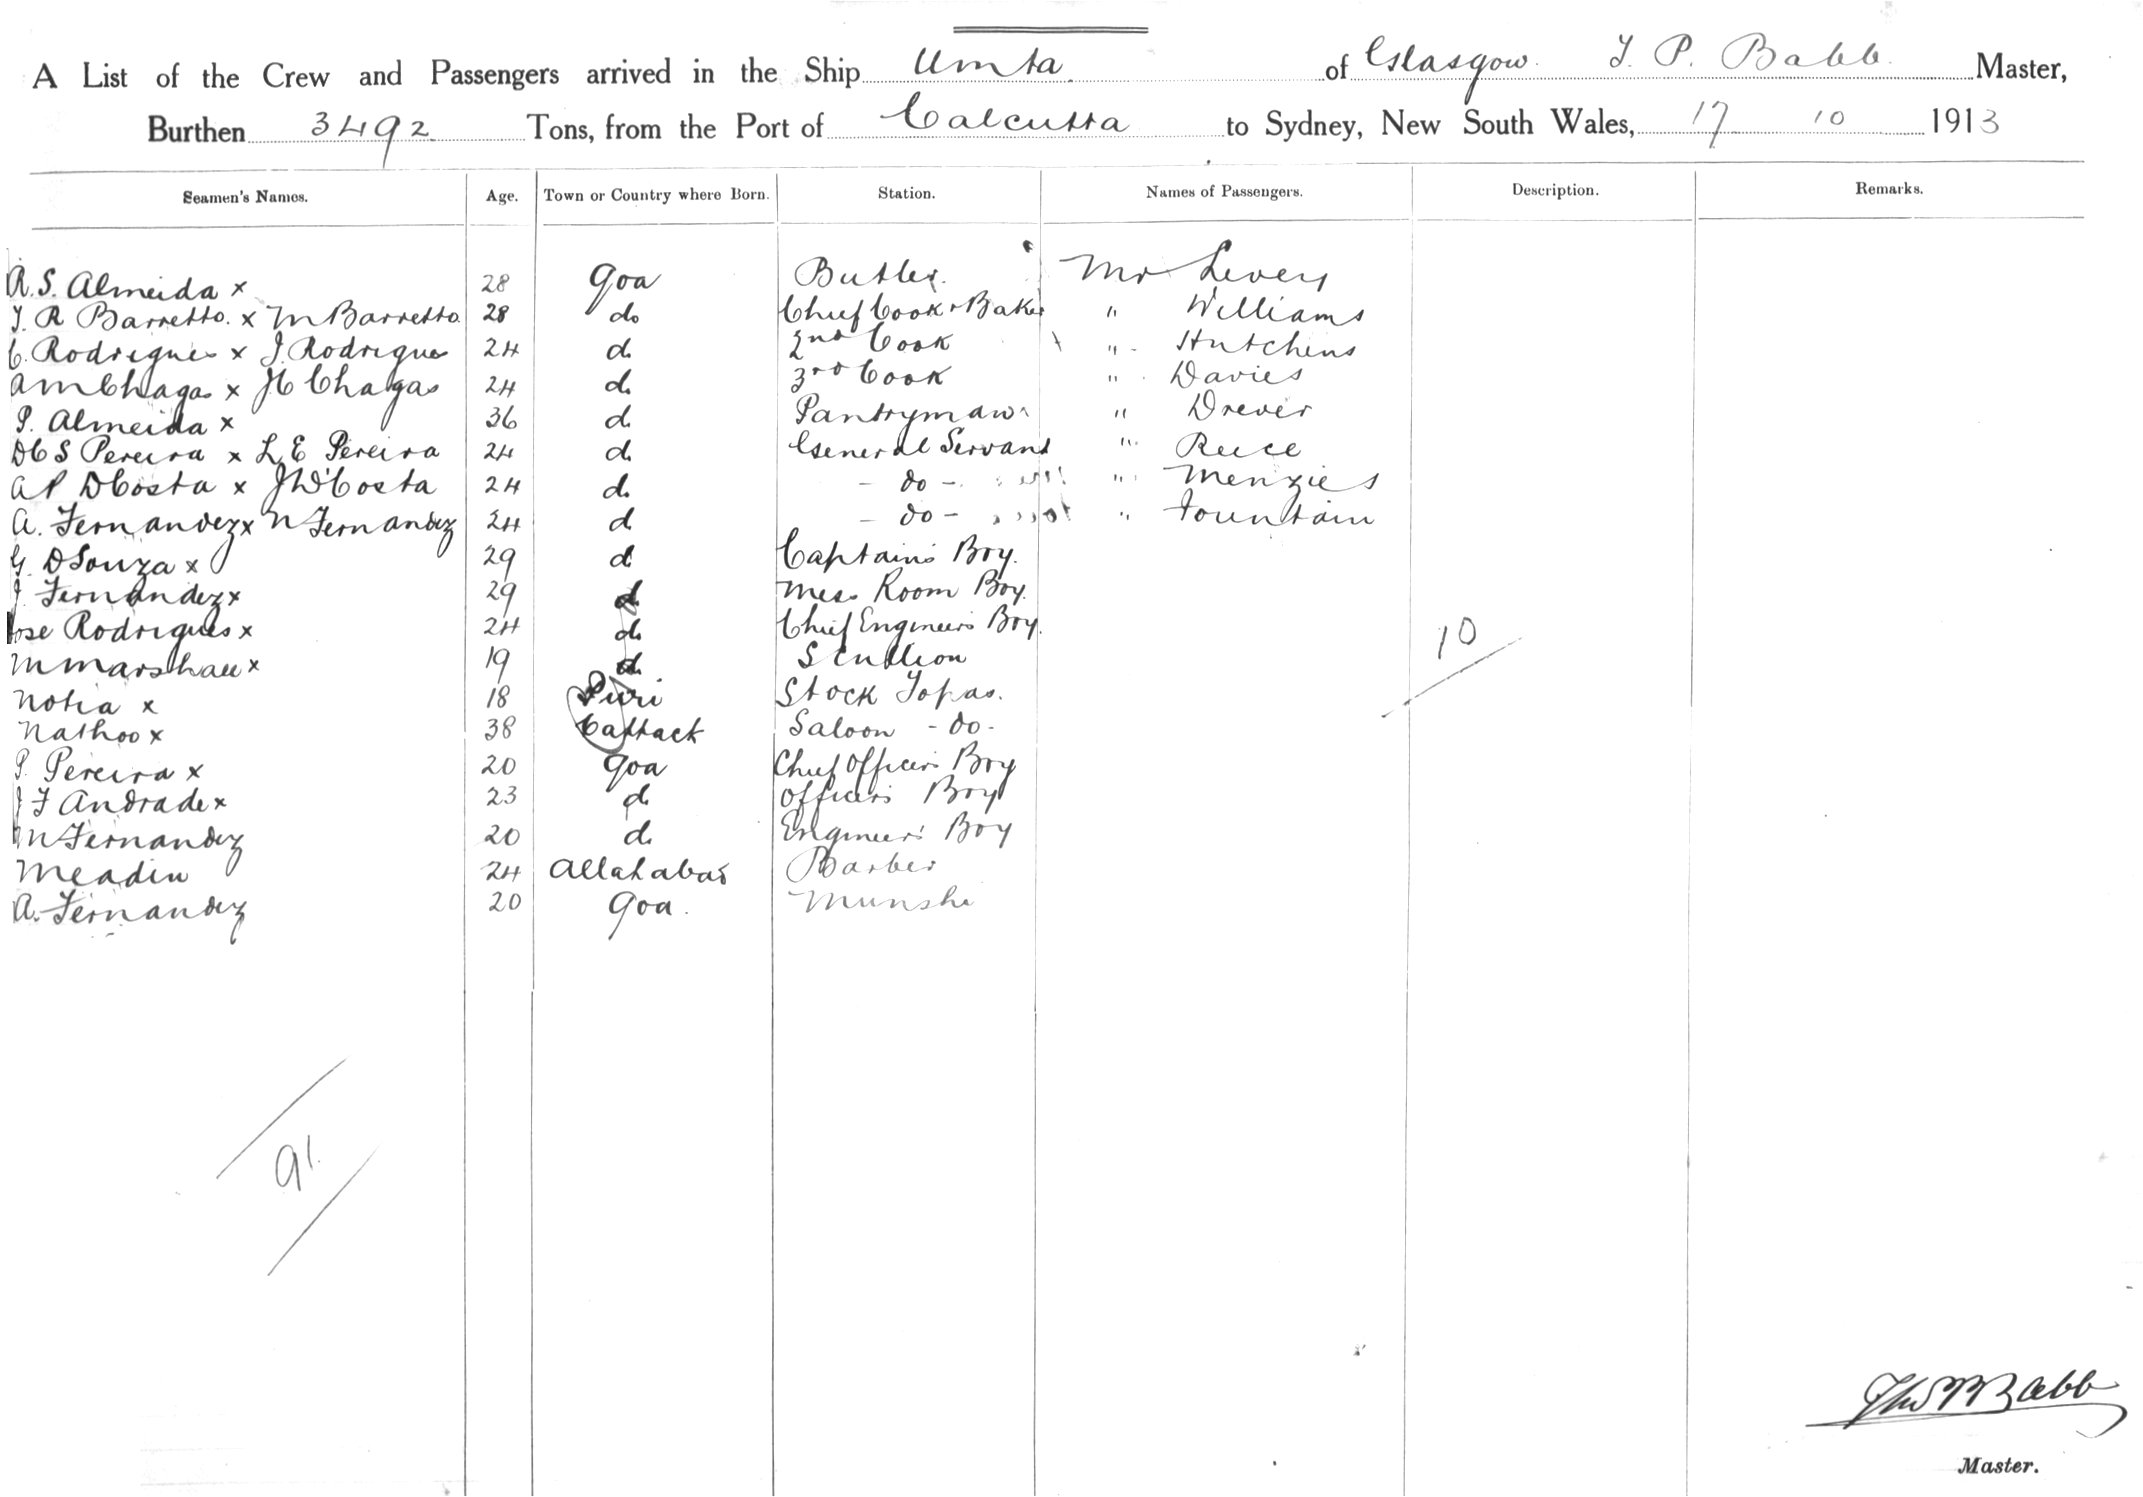 A List of the Crew and Passengers arrived in the Ship Umta of Glasgow. T. P. Babb. Master,
Burthen 3492 Tons, from the Port of Calcutta to Sydney, New South Wales, 17 10 1913
Seamen's Names. Age. Town or Country where Born. Station. Names of Passengers. Description. Remarks.
R. S. Almeida x 28 Goa Butler. Mr Levey
T. R Barretto. x M Barretto 28 do Chief Cook & Baker " Williams
C. Rodrigues x J. Rodrigues 24 d. 2nd Cook " Hutchins
A M Chagas x Chagas 24 d. 3rd Cook " Davies
P. Almeida x 36 d. Pantryman " Drever
D C S Pereira x L E Pereira 24 d. General Servant " Reece
A P DCosta x J D'Costa 24 d. - do - " Menzies
A. Fernandez x N Fernandez 24 d - do - " Fountain
G. DSouza x 29 d Captains Boy.
J Fernandez x 29 d. Mess Room Boy.
Jose Rodrigues x 24 d. Chief Engineers Boy.
M Marshall x 19 d. Scullion
Notia x 18 Puri Stock Topas.
Nathoo x 38 Cattack Saloon - do -
P. Pereira x 20 Goa Chief Officers Boy
J F Andrade x 23 d. Officers Boy
M Fernandez 20 d. Engineers Boy
Meadin 24 Allahabad Barber
A. Fernandez 20 Goa. Munshi
10
91.
Thos P Babb
Master.